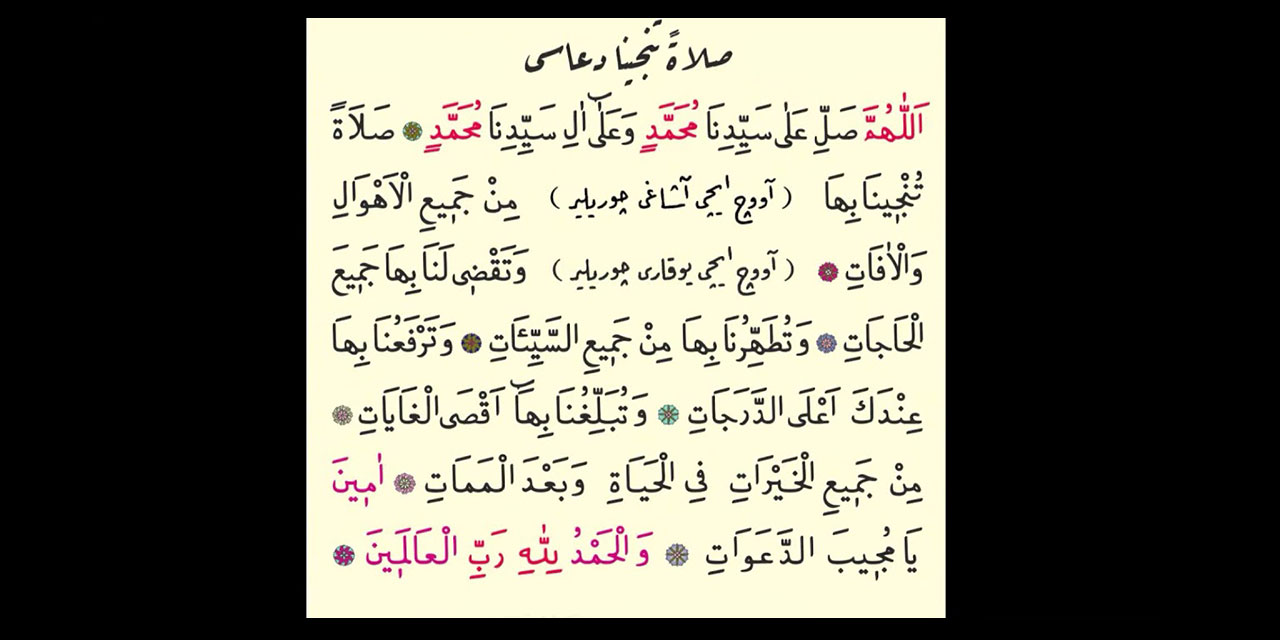 صلاةً تنجينا دعاسی
اَللّٰهُمَّ صَلِّ عَلٰى سَيِّدِنَا مُحَمَّدٍ وَعَلٰٓى اٰلِ سَيِّدِنَا مُحَمَّدٍ ۞ صَلَاةً
تُنْجٖينَا بِهَا ( آووچ ایچی آشاغی چوریلیر ) مِنْ جَمٖيعِ الْاَهْوَالِ
وَالْاٰفَاتِ ۞ ( آووچ ایچی یوقاری چوریلیر ) وَتَقْضٖى لَنَا بِهَا جَمٖيعَ
الْحَاجَاتِ ۞ وَتُطَهِّرُنَا بِهَا مِنْ جَمٖيعِ السَّيِّئَاتِ ۞ وَتَرْفَعُنَا بِهَا
عِنْدَكَ اَعْلَى الدَّرَجَاتِ ۞ وَتُبَلِّغُنَا بِهَٓا اَقْصَى الْغَايَاتِ ۞
مِنْ جَمٖيعِ الْخَيْرَاتِ فِى الْحَيَاةِ وَبَعْدَ الْمَمَاتِ ۞ اٰمٖينَ
يَا مُجٖيبَ الدَّعَوَاتِ ۞ وَالْحَمْدُ لِلّٰهِ رَبِّ الْعَالَمٖينَ ۞